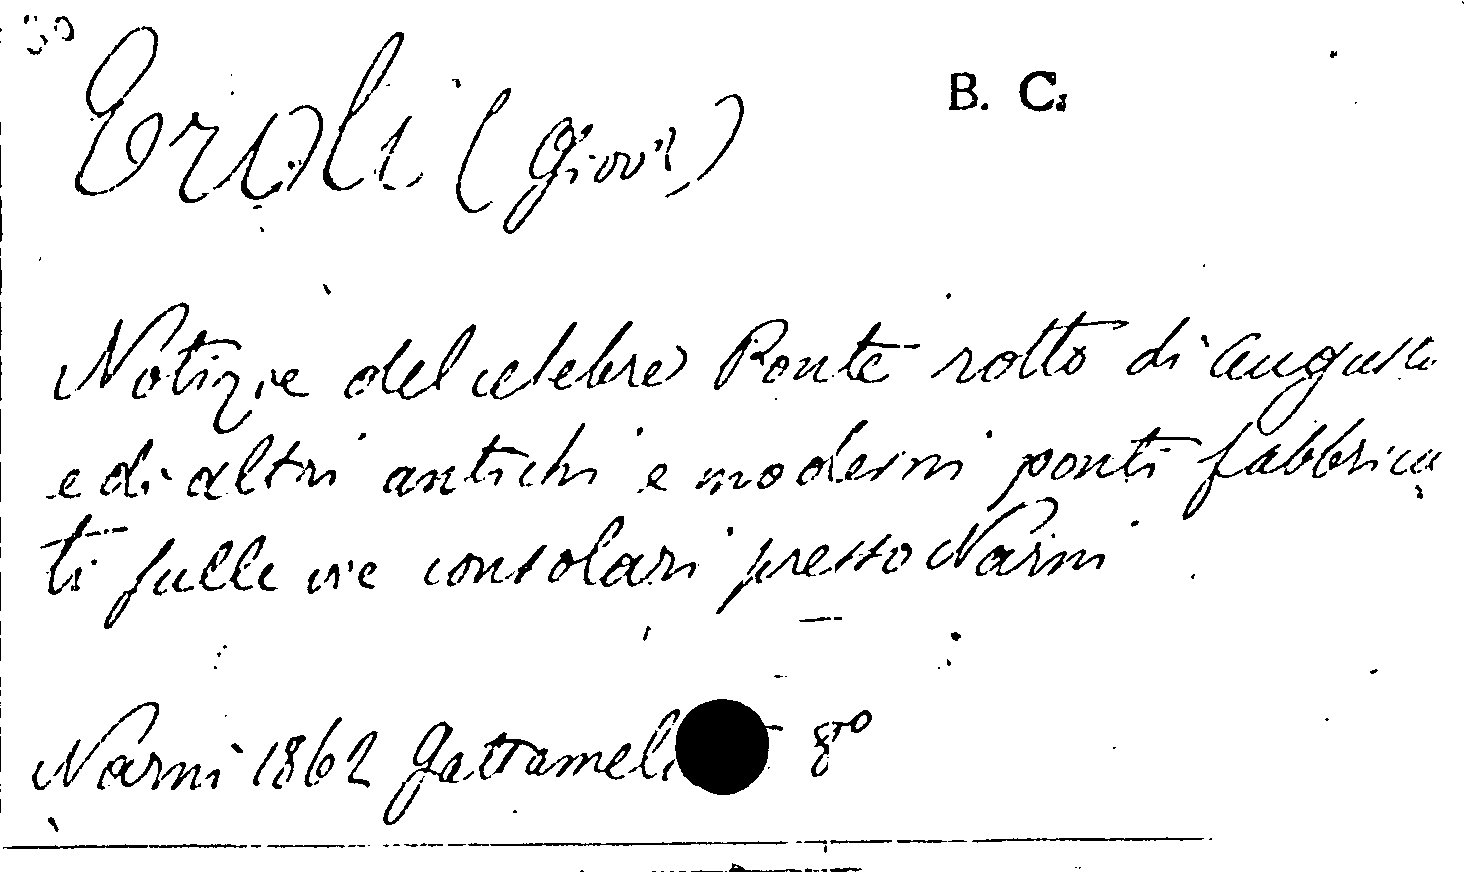 Eroli (Giov.i) B. C.
Notizie del celebre Ponte rotto di Augusto
e di altri antichi e moderni ponti fabbrica
ti sulle vie consolari presso Narni
Narni 1862 Gattamel 8vo